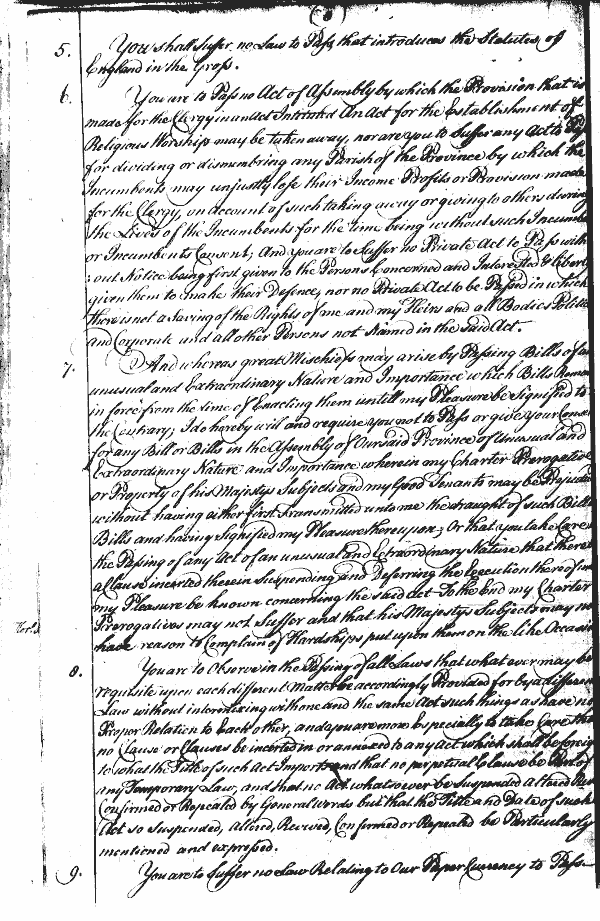 5. You shall Suffer no Law to Pass that introduces the Statutes of
England in the Gross.
6. You are to Pass no Act of Assembly by which the Provision that is
made for the Clergy in an Act Intituled An Act for the Establishment of
Religious Worships may be taken away, nor are you to Suffer any Act to
for dividing or dismembring any Parish of the Province by which the
Incumbents may unjustly lose their Income Profits or Provision made
for the Clergy, on account of such taking away or giving to others during
the Lives of the Incumbents for the time being without such
or Incumbents Consent; And you are to Suffer no Private Act to Pass with
:out Notice being first given to the Persons Concerned and Interested &
given them to make their Defence, nor no Private Act to be Passed in which
there is not a Saving of the Rights of me and my Heirs and all Bodies
and Corporate and all other Persons not Named in the said Act.
7. And whereas great Mischiefs may arise by Passing Bills of an
unusual and Extraordinary Nature and Importance which Bills Remain
in force from the time of Enacting them untill my Pleasure be Signified to
the Contrary; I do hereby will and require you not to Pass or give your
for any Bill or Bills in the Assembly of Our said Province of Unusual and
Extraordinary Nature and Importance wherein my Charter Prerogative
or Property of his Majestys Subjects and my Good Tenants may be
without having either first transmitted unto me the draught of such Bill
Bills and having Signified my Pleasure thereupon; Or that you take Care
the Passing of any Act of an unusual and Extraordinary Nature that there
a Clause incerted therein Suspending and Deferring the Execution thereof
my Pleasure be known concerning the said Act To the End my Charter
Prerogatives may not Suffer and that his Majestys Subjects may no
have reason to Complain of Hardships put upon them on the like
8. You are to Observe in the Passing of all Laws that what ever may be
requisite upon each different Matter be accordingly Provided for by a different
Law without interlacing with one and the same Act such things as have no
Proper Relation to Each other, and you are more Especially to take Care that
no Clause or Clauses be incerted in or annexed to any Act which shall be foreign
to what the Title of such Act Imports and that no perpetual Clause be Part of
any Temporary Law, and that no Act whatsoever be Suspended Altered
Confirmed or Repealed by General words but that the Title and Date of such
Act so Suspended, Altered, Revived, Confirmed or Repealed be Particularly
mentioned and expressed.
9. You are to Suffer no Law Relating to Our Paper Currency to Pass